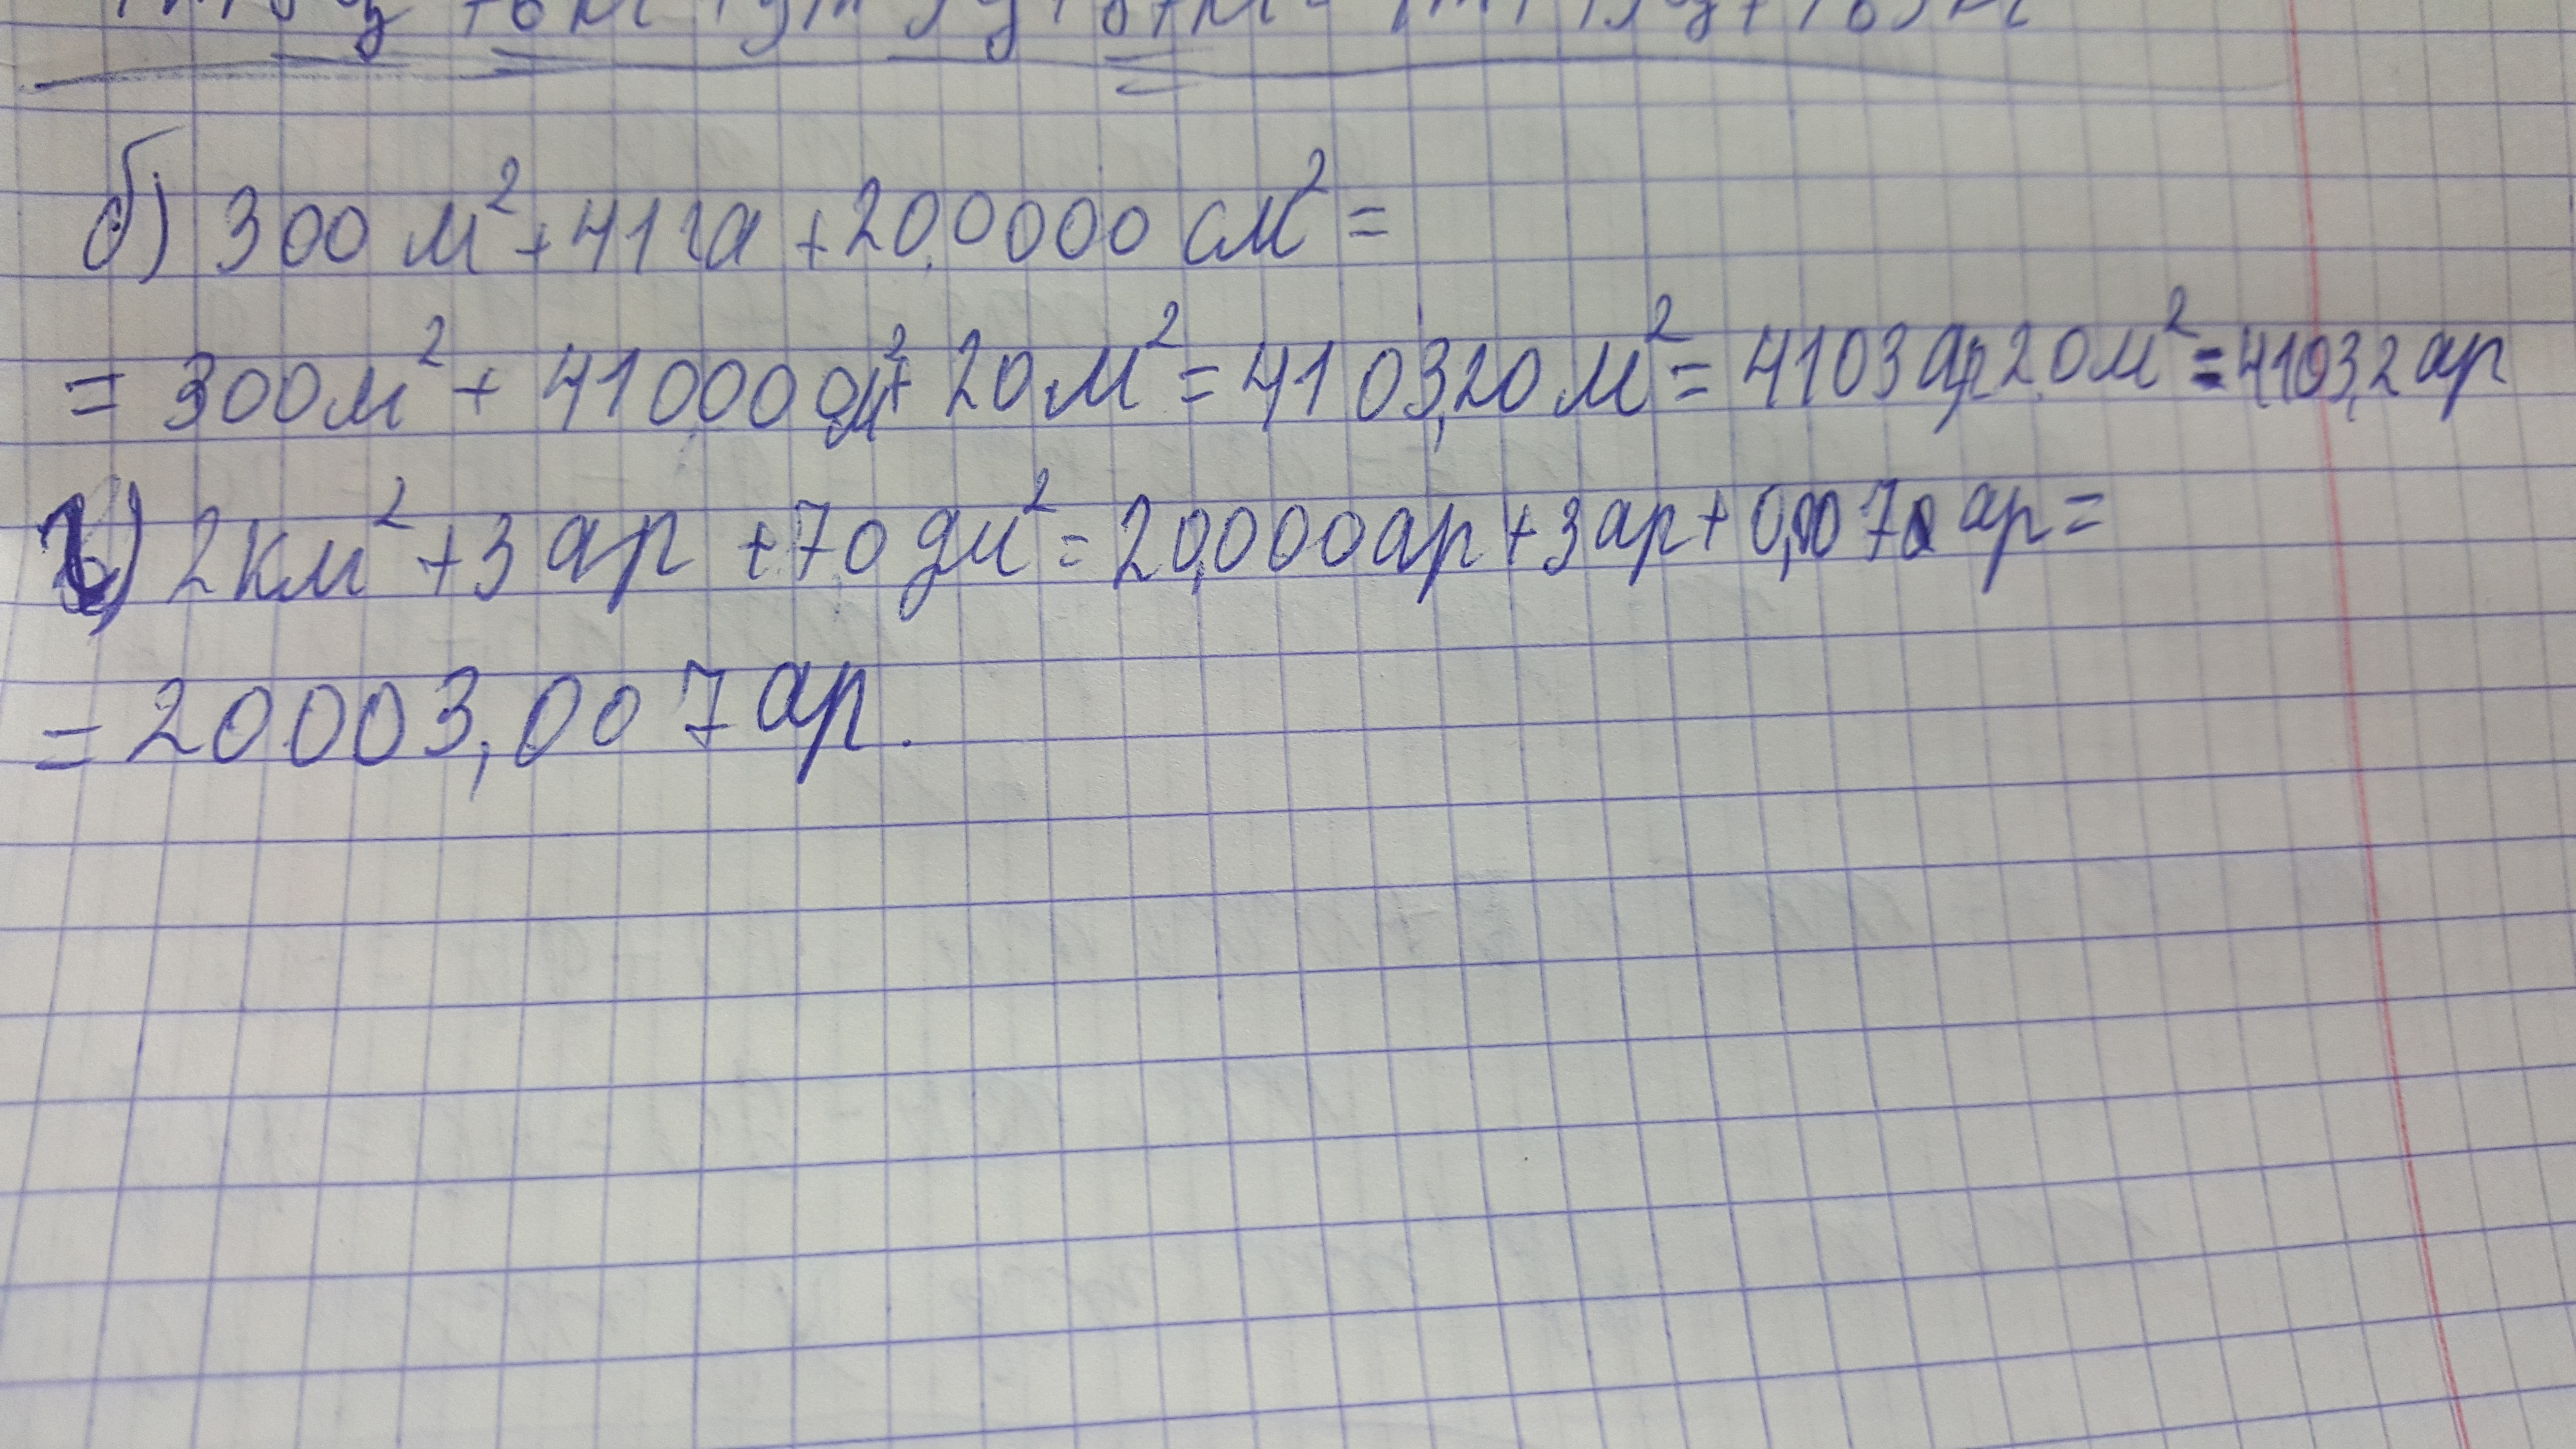 б) 300 м² + 41 га + 20.0000 см² =
= 300 м² + 41000 м² + 20 м² = 4103,20 м² = 4103 ар 20 м² = 4103,2 ар
2 км² + 3 ар + 70 дм² = 20,000 ар + 3 ар + 0,0070 ар =
= 20003,007 ар.